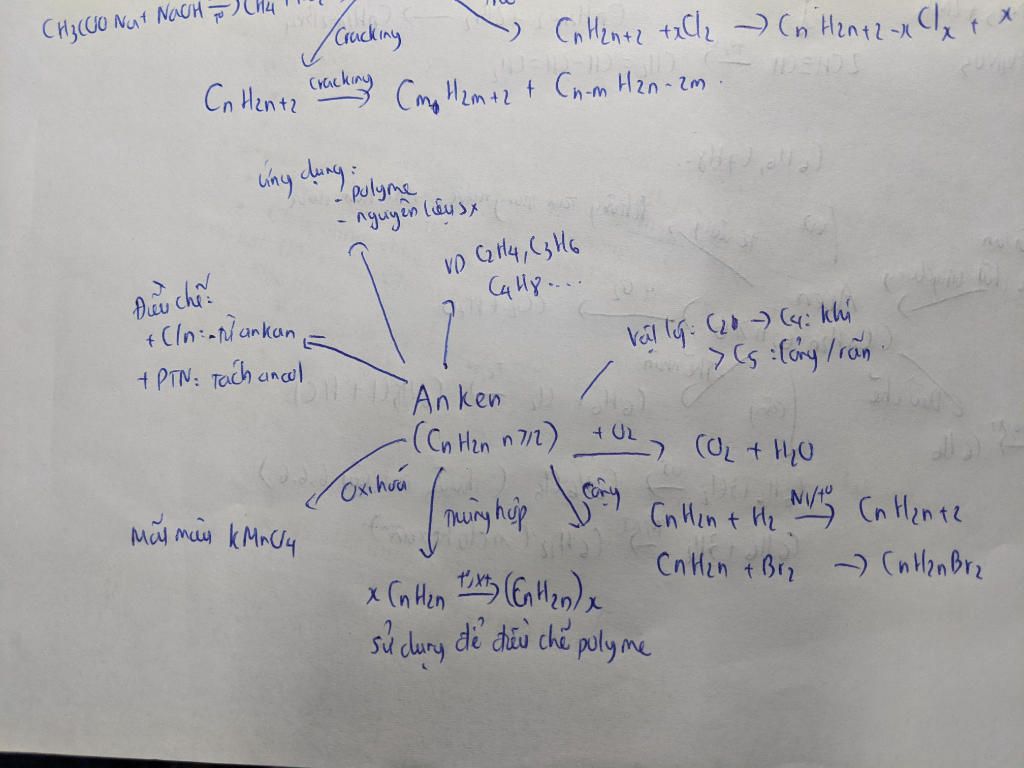 CH3COONa + NaOH → CH4 +
Cracking
CnH2n+2 + xCl2 → CnH2n+2-xClx + x
CnH2n+2 cracking → CmH2m+2 + Cn-mH2n-2m.
Ứng dụng:
- polyme
- nguyên liệu sx
VD C2H4, C3H6
C4H8 ....
Điều chế:
+ CIn: - từ ankan
+ PTN: Tách ancol
Vật lý: C2 → C4: khí
> C5: lỏng/rắn
Anken
(CnH2n n≥2) + O2 → CO2 + H2O
Oxi hoá
Trùng hợp
Cộng
Mất màu KMnO4
CnH2n + H2 Ni/t° → CnH2n+2
CnH2n + Br2 → CnH2nBr2
x CnH2n t°,xt → (CnH2n)x
sử dụng để điều chế polyme